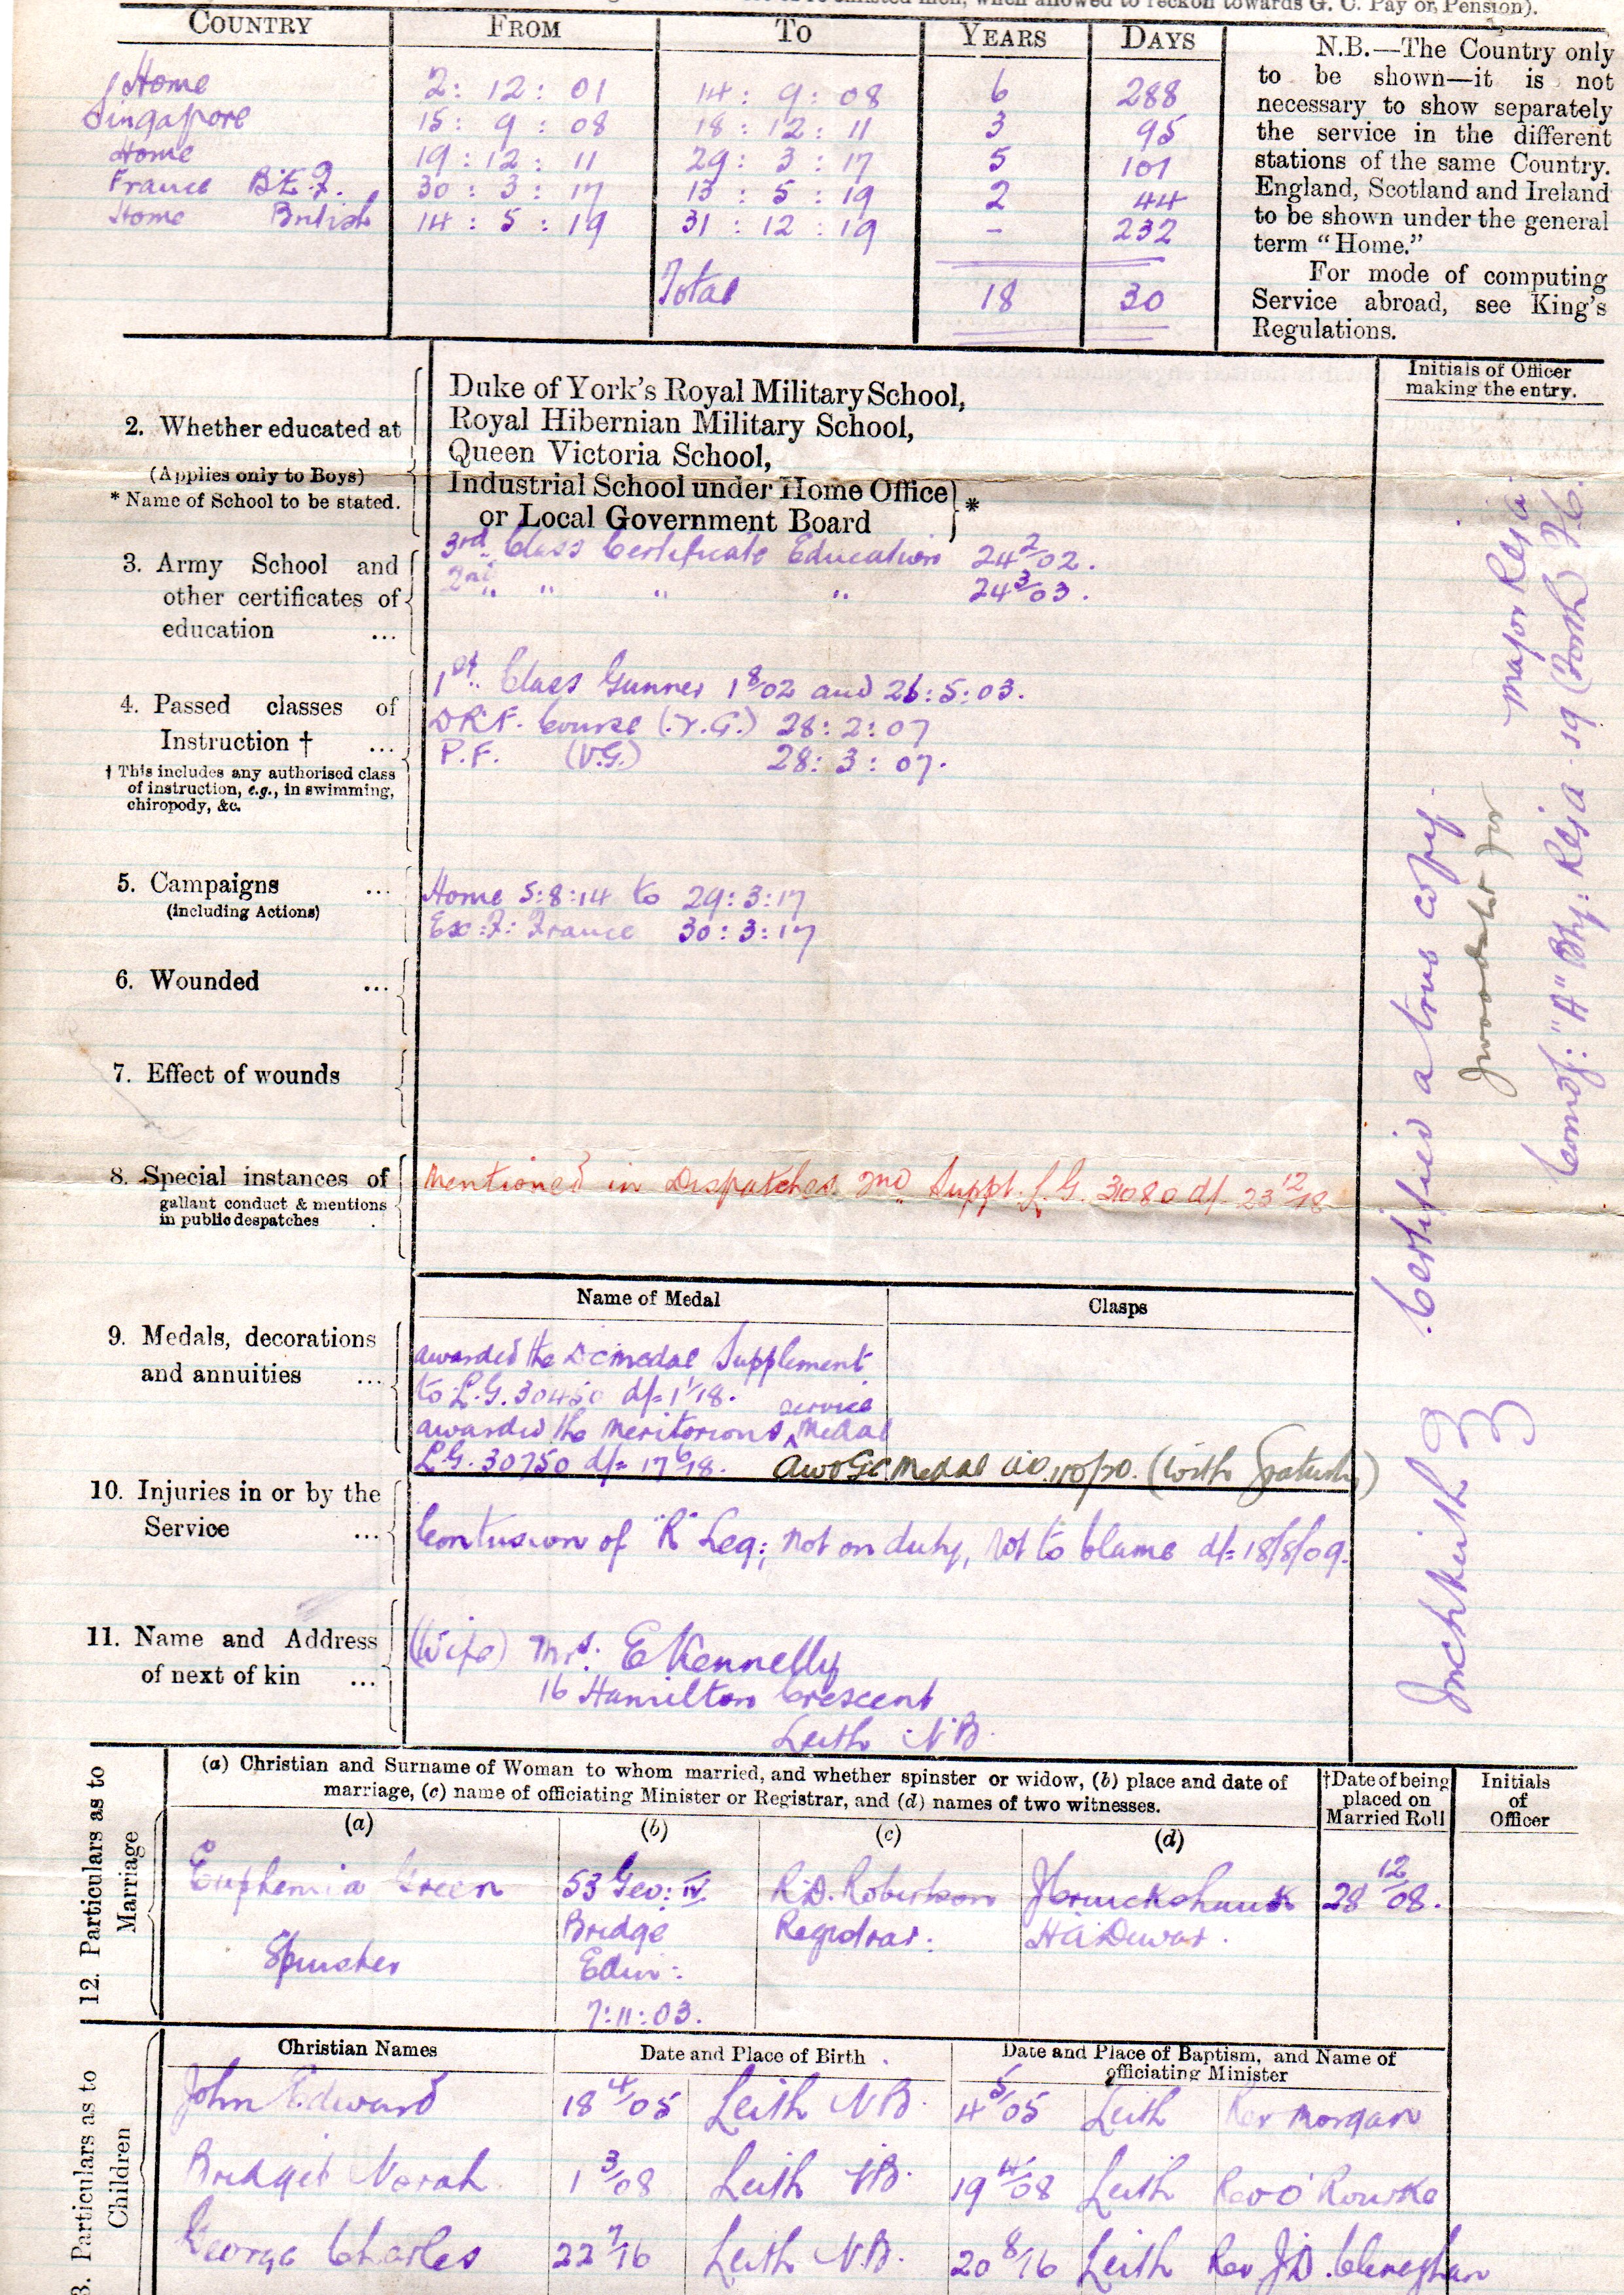 when allowed to reckon towards G. C. Pay or Pension).
COUNTRY FROM TO YEARS DAYS
Home 2 : 12 : 01 14 : 9 : 08 6 288
Singapore 15 : 9 : 08 18 : 12 : 11 3 95
Home 19 : 12 : 11 29 : 3 : 17 5 101
France B.E.F. 30 : 3 : 17 13 : 5 : 19 2 44
Home British 14 : 5 : 19 31 : 12 : 19 - 232
Total 18 30
N.B.—The Country only
to be shown—it is not
necessary to show separately
the service in the different
stations of the same Country.
England, Scotland and Ireland
to be shown under the general
term “Home.”
For mode of computing
Service abroad, see King's
Regulations.
Initials of Officer
making the entry.
2. Whether educated at
(Applies only to Boys)
* Name of School to be stated.
Duke of York's Royal Military School,
Royal Hibernian Military School,
Queen Victoria School,
Industrial School under Home Office
or Local Government Board *
3. Army School and
other certificates of
education ...
3rd Class Certificate Education 24 2/02.
2nd " " " 24 3/03.
4. Passed classes of
Instruction † ...
† This includes any authorised class
of instruction, e.g., in swimming,
chiropody, &c.
1st Class Gunner 1 8/02 and 26:5:03.
D.R.F. Course (V.G.) 28:2:07
P.F. (V.G.) 28:3:07.
5. Campaigns ...
(including Actions)
Home 5:8:14 to 29:3:17
Ex:F: France 30:3:17
6. Wounded ...
7. Effect of wounds
8. Special instances of
gallant conduct & mentions
in public despatches
Mentioned in Dispatches 2nd Suppt. L.G. 31080 d/- 23 12/18
Name of Medal Clasps
9. Medals, decorations
and annuities ...
awarded the D C Medal Supplement
to L.G. 30450 d/= 1 1/18.
service
awarded the Meritorious ^ Medal
L.G. 30750 d/= 17 6/18. Medal (with Gratuity)
10. Injuries in or by the
Service ...
Contusion of "R" Leg; not on duty, not to blame d/= 18/8/09.
11. Name and Address
of next of kin ...
(Wife) Mrs: E Kennelly
16 Hamilton Crescent
Leith N.B.
Certified a true copy.
Major R.G.A.
Comdg: "A" Bty: R.G.A. (Forth)
Inchkeith
12. Particulars as to
Marriage
(a) Christian and Surname of Woman to whom married, and whether spinster or widow, (b) place and date of
marriage, (c) name of officiating Minister or Registrar, and (d) names of two witnesses.
†Date of being
placed on
Married Roll
Initials
of
Officer
(a) (b) (c) (d)
Euphemia Green 53 Geo: IV. R.D. Robertson J Cruickshank 28 12/08.
Bridge Registrar. H A Dewar.
Spinster Edin:
7:11:03.
Particulars as to
Children
Christian Names Date and Place of Birth Date and Place of Baptism, and Name of
officiating Minister
John Edward 18 4/05 Leith N.B. 4 5/05 Leith Rev Morgan
Bridget Norah 1 3/08 Leith N.B. 19 4/08 Leith Rev O'Rourke
George Charles 22 7/16 Leith N.B. 20 8/16 Leith Rev J.D.